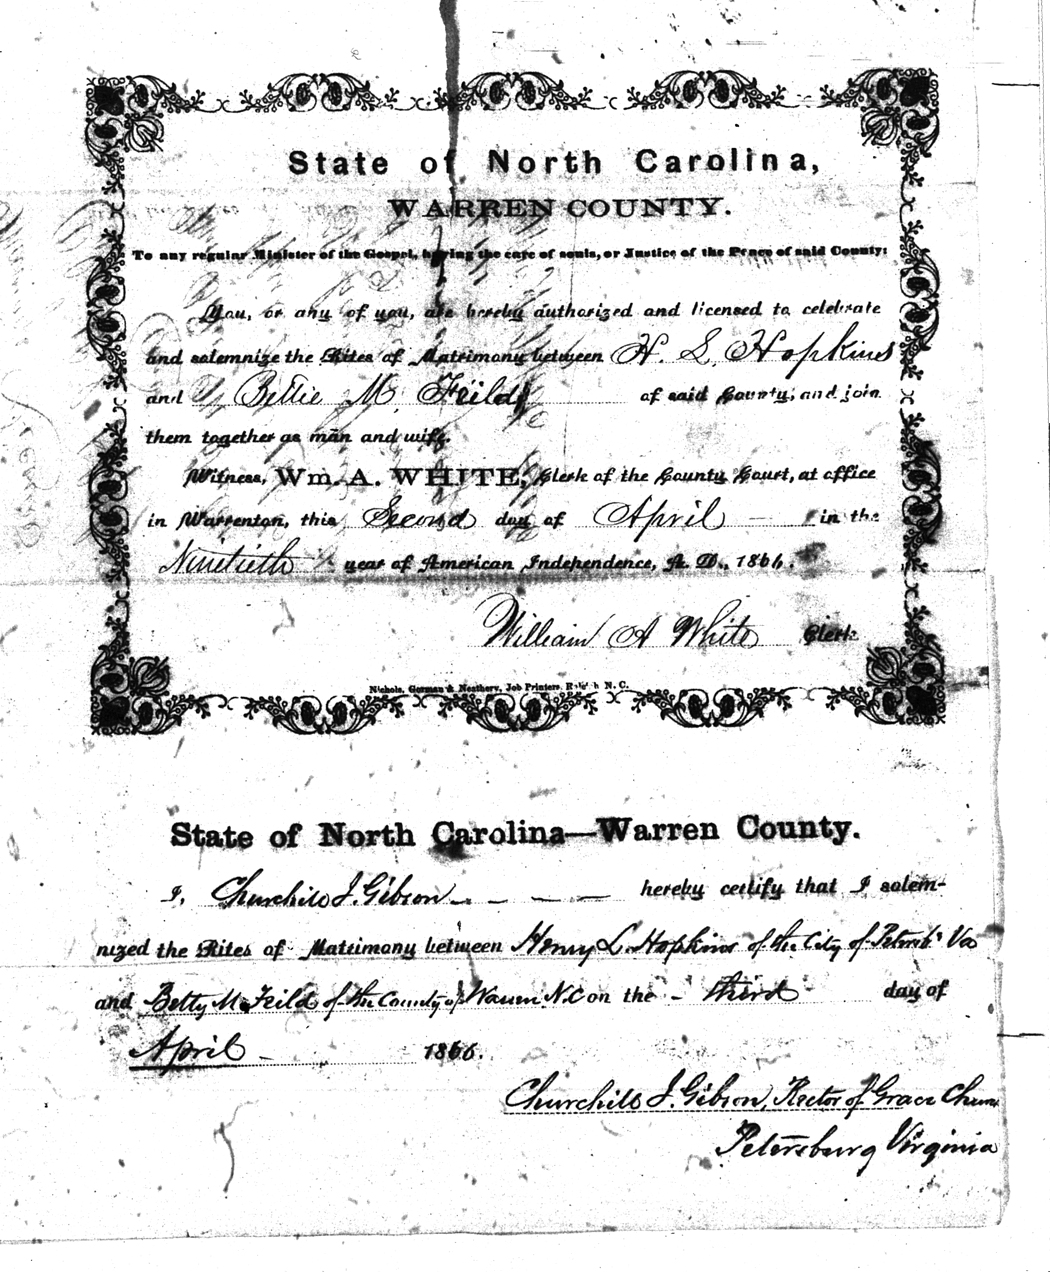 State of North Carolina,
WARREN COUNTY.
To any regular Minister of the Gospel, having the care of souls, or Justice of the Peace of said County:
You, or any of you, are hereby authorized and licensed to celebrate
and solemnize the Rites of Matrimony between H. L. Hopkins
and Bettie M. Feild of said County, and join
them together as man and wife.
Witness, Wm. A. WHITE, Clerk of the County Court, at office
in Warrenton, this Second day of April in the
Ninetieth year of American Independence, A. D., 1866.
William A White Clerk
Nichols, Gorman & Neathery, Job Printers, Raleigh N. C.
State of North Carolina—Warren County.
I, Churchill J. Gibson hereby certify that I solem-
nized the Rites of Matrimony between Henry L. Hopkins of the City of Petersb. Va
and Betty M. Feild of the County of Warren N.C on the third day of
April 1866.
Churchill J. Gibson, Rector of Grace
Petersburg Virginia